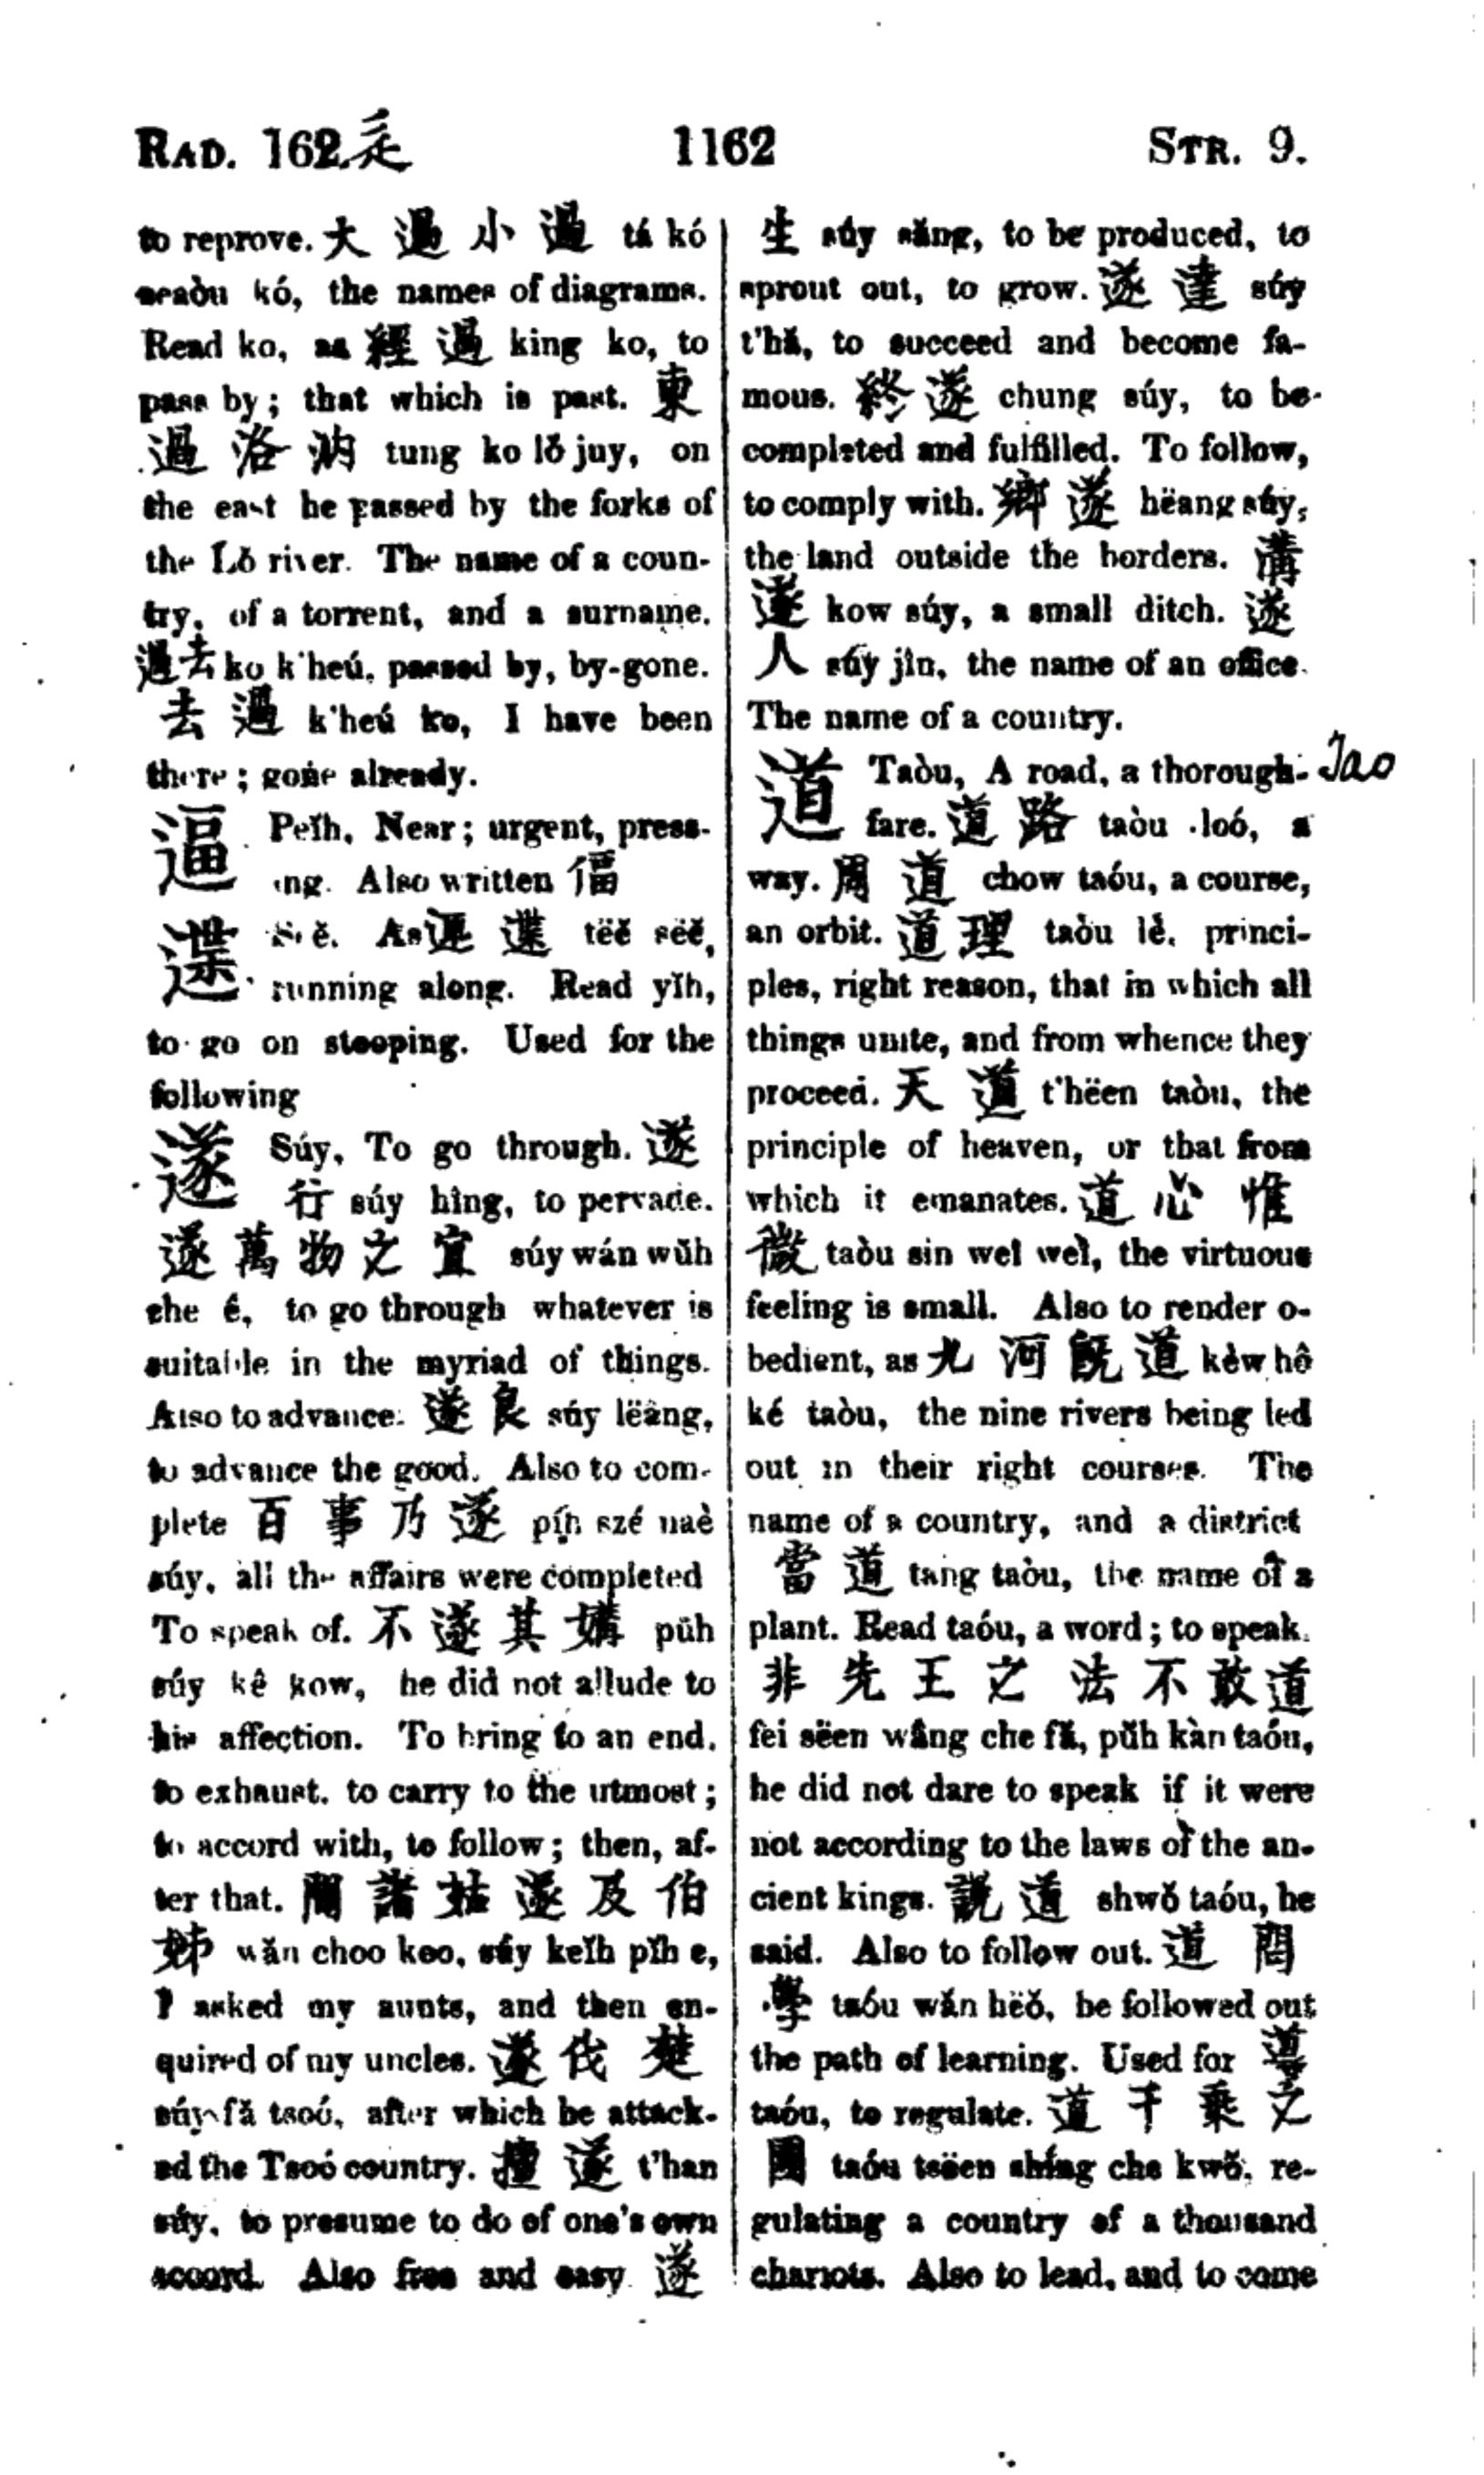 RAD. 162. 辵 1162 STR. 9.
to reprove. 大過小過 tá kó
seaòu kó, the names of diagrams.
Read ko, as 經過 king ko, to
pass by; that which is past. 東
過洛汭 tung ko lŏ juy, on
the east he passed by the forks of
the Lŏ river. The name of a coun-
try, of a torrent, and a surname.
過去 ko k'heú, passed by, by-gone.
去過 k'heú ko, I have been
there; gone already.
逼 Peĭh, Near; urgent, press-
ing. Also written 偪
遱 As 遱 tëĕ sëĕ,
running along. Read yĭh,
to go on stooping. Used for the
following
遂 Súy, To go through. 遂
行 súy hîng, to pervade.
遂萬物之宜 súy wán wŭh
che ê, to go through whatever is
suitable in the myriad of things.
Also to advance. 遂良 súy lëâng,
to advance the good. Also to com-
plete 百事乃遂 pĭh szé naè
súy, all the affairs were completed
To speak of. 不遂其媾 pŭh
súy kê kow, he did not allude to
his affection. To bring to an end,
to exhaust. to carry to the utmost;
to accord with, to follow; then, af-
ter that. 問諸姑遂及伯
姊 wăn choo koo, súy keĭh pĭh e,
I asked my aunts, and then en-
quired of my uncles. 遂伐楚
súy fă tsoó, after which he attack-
ed the Tsoó country. 擅遂 t'han
súy, to presume to do of one's own
accord. Also free and easy 遂
生 súy săng, to be produced, to
sprout out, to grow. 遂達 súy
t'hă, to succeed and become fa-
mous. 終遂 chung súy, to be
completed and fulfilled. To follow,
to comply with. 鄉遂 hëang súy,
the land outside the borders. 溝
遂 kow súy, a small ditch. 遂
人 súy jîn, the name of an office.
The name of a country.
道 Taòu, A road, a thorough- Tao
fare. 道路 taòu loó, a
way. 周道 chow taóu, a course,
an orbit. 道理 taòu lè, princi-
ples, right reason, that in which all
things unite, and from whence they
proceed. 天道 t'hëen taòu, the
principle of heaven, or that from
which it emanates. 道心惟
微 taòu sin weî weî, the virtuous
feeling is small. Also to render o-
bedient, as 九河既道 kèw hô
ké taòu, the nine rivers being led
out in their right courses. The
name of a country, and a district
當道 tang taòu, the name of a
plant. Read taóu, a word; to speak.
非先王之法不敢道
fei sëen wâng che fă, pŭh kàn taóu,
he did not dare to speak if it were
not according to the laws of the an-
cient kings. 説道 shwŏ taóu, he
said. Also to follow out. 道問
學 taóu wăn hëŏ, he followed out
the path of learning. Used for 導
taóu, to regulate. 道千乘之
國 taóu tsëen shíng che kwŏ, re-
gulating a country of a thousand
chariots. Also to lead, and to come